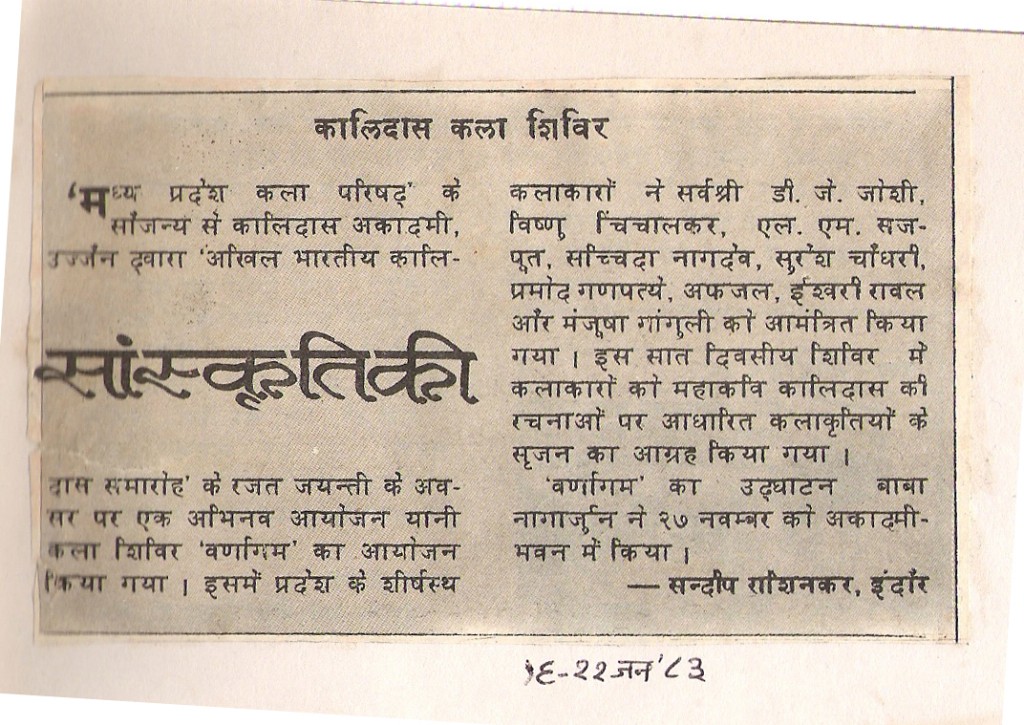 कालिदास कला शिविर
'मध्य प्रदेश कला परिषद्' के
सौजन्य से कालिदास अकादमी,
उज्जैन द्वारा 'अखिल भारतीय कालि-
सांस्कृतिकी
दास समारोह' के रजत जयन्ती के अव-
सर पर एक अभिनव आयोजन यानी
कला शिविर 'वर्णागम' का आयोजन
किया गया । इसमें प्रदेश के शीर्षस्थ
कलाकारों ने सर्वश्री डी. जे. जोशी,
विष्णु चिंचालकर, एल. एम. सज-
पूत, सच्चिदा नागदेव, सुरेश चौधरी,
प्रमोद गणपत्ये, अफजल, ईश्वरी रावल
और मंजूषा गांगुली को आमंत्रित किया
गया । इस सात दिवसीय शिविर में
कलाकारों को महाकवि कालिदास की
रचनाओं पर आधारित कलाकृतियों के
सृजन का आग्रह किया गया ।
'वर्णागम' का उद्घाटन बाबा
नागार्जुन ने २७ नवम्बर को अकादमी-
भवन में किया ।
— सन्दीप राशिनकर, इंदौर
१६-२२ जन '८३